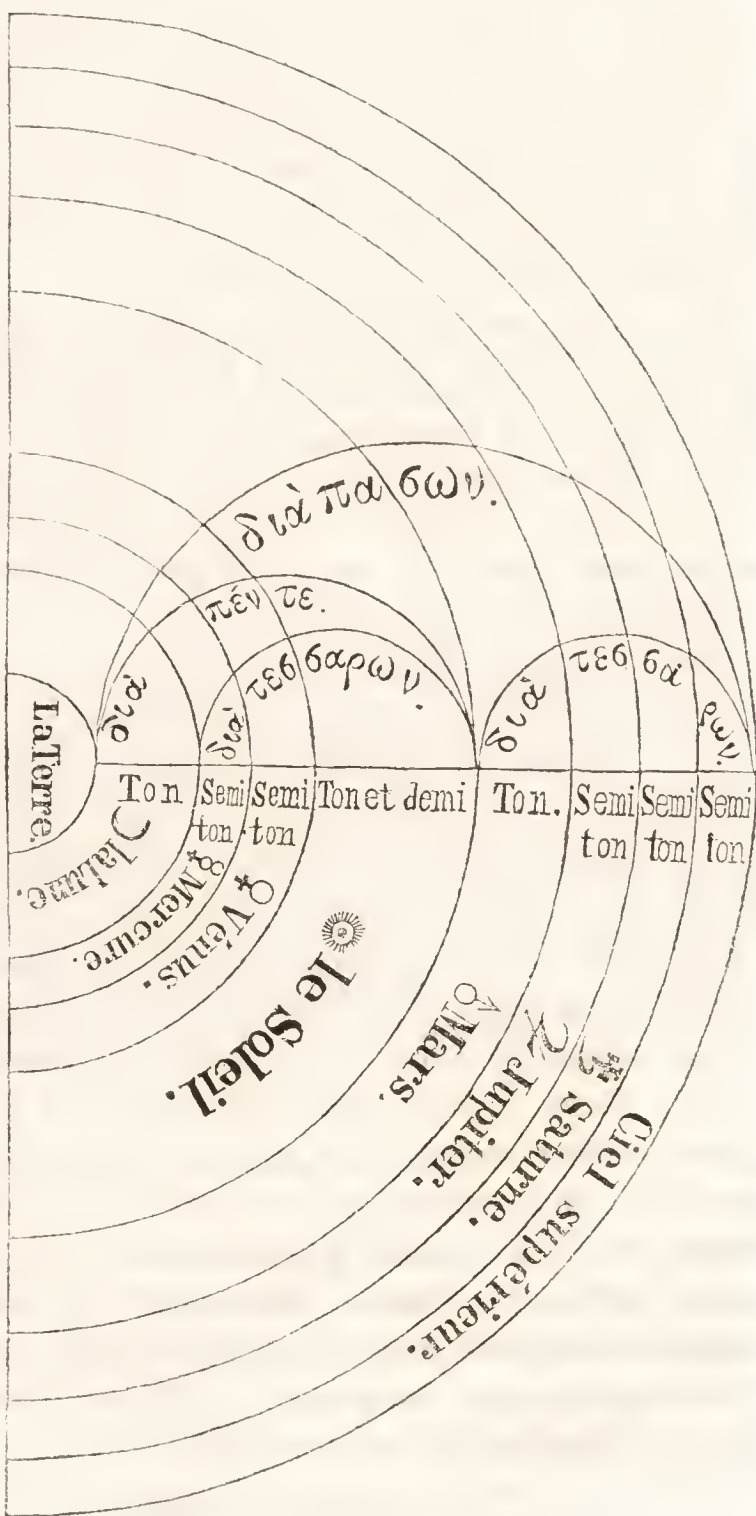 διὰ πα σων.
διὰ πέν τε.
διὰ τεσ σαρων.
διὰ τεσ σά ρων.
Ton
Semi ton
Semi ton.
Ton et demi
Ton.
Semi ton
Semi ton
Semi ton
La Terre.
☾ la lune.
☿ Mercure.
♀ Vénus.
le Soleil.
♂ Mars.
♃ Jupiter.
♄ Saturne.
Ciel supérieur.